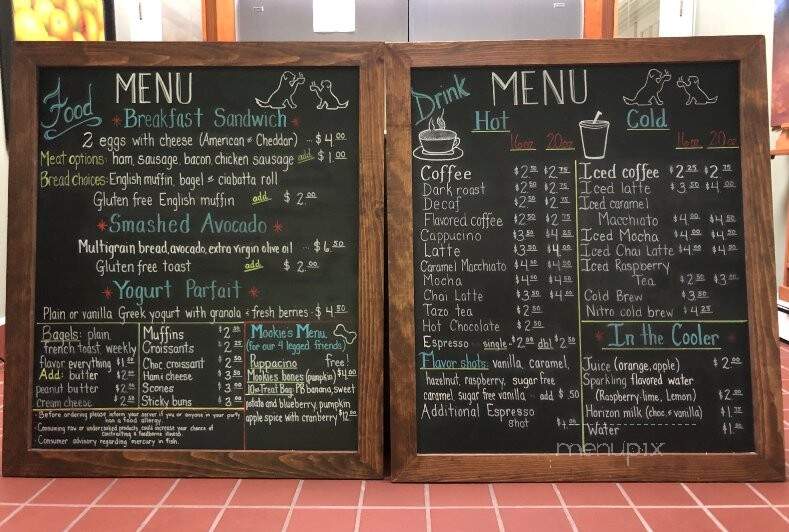 Food MENU
Breakfast Sandwich
2 eggs with cheese (American & Cheddar) ... $4.00
Meat options: ham, sausage, bacon, chicken sausage add $1.00
Bread choices: English muffin, bagel & ciabatta roll
Gluten free English muffin add $2.00
Smashed Avocado
Multigrain bread, avocado, extra virgin olive oil ... $6.50
Gluten free toast add $2.00
Yogurt Parfait
Plain or vanilla Greek yogurt with granola & fresh berries - $4.50
Bagels: plain
french toast, weekly
flavor, everything
Add: butter
peanut butter
cream cheese
Muffins
Croissants
Choc croissant
Ham & cheese $3.00
Scones $3.00
Sticky buns $3.00
Mookie's Menu
(for our 4 legged friends)
Puppacino free!
Mookies bones (pumpkin) $4.00
10oz Treat Bag: PB banana, sweet
potato and blueberry, pumpkin
apple spice with cranberry $12.00
- Before ordering please inform your server if you or anyone in your party
has a food allergy.
- Consuming raw or undercooked products could increase your chance of
contracting a foodborne illness.
- Consumer advisory regarding mercury in fish.
Drink MENU
Hot
16oz 20oz
Coffee $2.50 $2.75
Dark roast $2.50 $2.75
Decaf $2.50 $2.75
Flavored coffee $2.50 $2.75
Cappucino $3.50 $4.25
Latte $3.50 $4.00
Caramel Macchiato $4.00 $4.50
Mocha $4.00 $4.50
Chai Latte $3.50 $4.00
Tazo tea $2.50
Hot Chocolate $2.50
Espresso single - $2.00 dbl $2.50
Flavor shots: vanilla, caramel,
hazelnut, raspberry, sugar free
caramel, sugar free vanilla - add $.50
Additional Espresso
shot
Cold
16oz 20oz
Iced coffee $2.25 $2.75
Iced latte $3.50 $4.00
Iced caramel
Macchiato $4.00 $4.50
Iced Mocha $4.00 $4.50
Iced Chai Latte $4.00 $4.50
Iced Raspberry
Tea $2.50 $3.00
Cold Brew $3.50
Nitro cold brew $4.25
In the Cooler
Juice (orange, apple) $2.00
Sparkling flavored water
(Raspberry-lime, Lemon) $2.00
Horizon milk (choc & vanilla)
Water
menupix